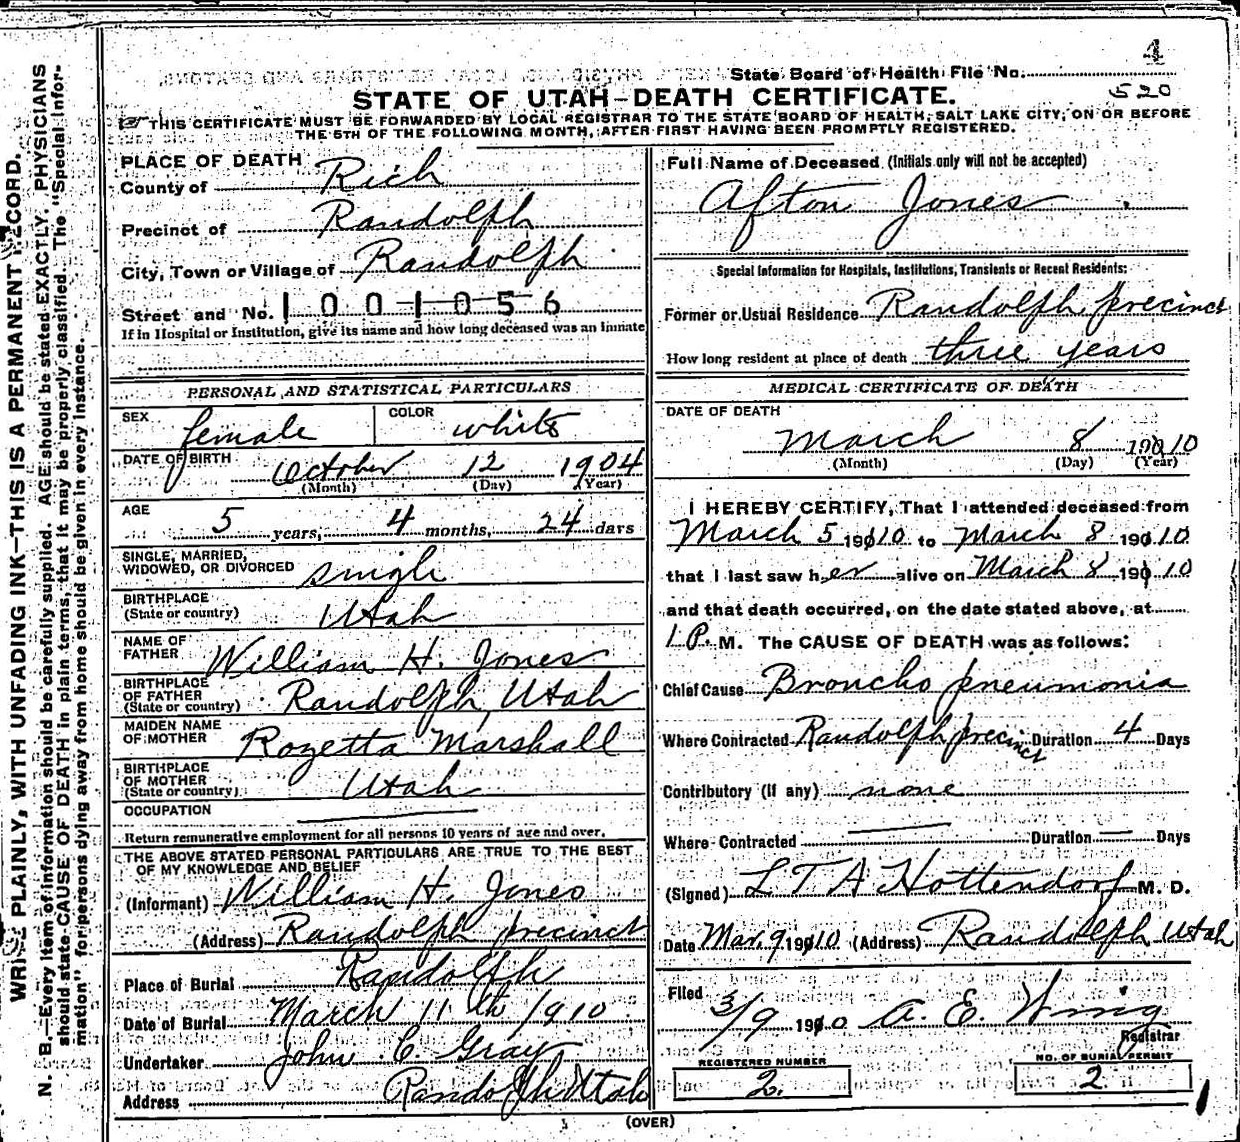 4
State Board of Health File No.
520
STATE OF UTAH–DEATH CERTIFICATE.
THIS CERTIFICATE MUST BE FORWARDED BY LOCAL REGISTRAR TO THE STATE BOARD OF HEALTH, SALT LAKE CITY, ON OR BEFORE
THE 5TH OF THE FOLLOWING MONTH, AFTER FIRST HAVING BEEN PROMPTLY REGISTERED.
WRITE PLAINLY, WITH UNFADING INK—THIS IS A PERMANENT RECORD.
N. B.—Every item of information should be carefully supplied. AGE should be stated EXACTLY. PHYSICIANS
should state CAUSE OF DEATH in plain terms, that it may be properly classified. The "Special Infor-
mation" for persons dying away from home should be given in every instance.
PLACE OF DEATH
County of Rich
Precinct of Randolph
City, Town or Village of Randolph
Street and No. 1001056
If in Hospital or Institution, give its name and how long deceased was an Inmate
PERSONAL AND STATISTICAL PARTICULARS
SEX female COLOR white
DATE OF BIRTH October 12 1904
(Month) (Day) (Year)
AGE
5 years, 4 months, 24 days
SINGLE, MARRIED,
WIDOWED, OR DIVORCED single
BIRTHPLACE
(State or country) Utah
NAME OF
FATHER William H. Jones
BIRTHPLACE
OF FATHER
(State or country) Randolph, Utah
MAIDEN NAME
OF MOTHER Rozetta Marshall
BIRTHPLACE
OF MOTHER
(State or country) Utah
OCCUPATION
Return remunerative employment for all persons 10 years of age and over.
THE ABOVE STATED PERSONAL PARTICULARS ARE TRUE TO THE BEST
OF MY KNOWLEDGE AND BELIEF
(Informant) William H. Jones
(Address) Randolph precinct
Place of Burial Randolph
Date of Burial March 11th 1910
Undertaker John C. Gray
Address Randolph Utah
Full Name of Deceased (Initials only will not be accepted)
Afton Jones
Special Information for Hospitals, Institutions, Transients or Recent Residents:
Former or Usual Residence Randolph precinct
How long resident at place of death three years
MEDICAL CERTIFICATE OF DEATH
DATE OF DEATH
March 8 19010
(Month) (Day) (Year)
I HEREBY CERTIFY, That I attended deceased from
March 5 19010 to March 8 19010
that I last saw her alive on March 8 19010
and that death occurred, on the date stated above, at
1 P. M. The CAUSE OF DEATH was as follows:
Chief Cause Broncho pneumonia
Where Contracted Randolph precinct Duration 4 Days
Contributory (if any) none
Where Contracted Duration Days
(Signed) L T A Hottendorf M. D.
Date Mar. 9 19010 (Address) Randolph Utah
Filed 3/9 1910 A. E. Wing
Registrar
REGISTERED NUMBER
2.
NO. OF BURIAL PERMIT
2
(OVER)